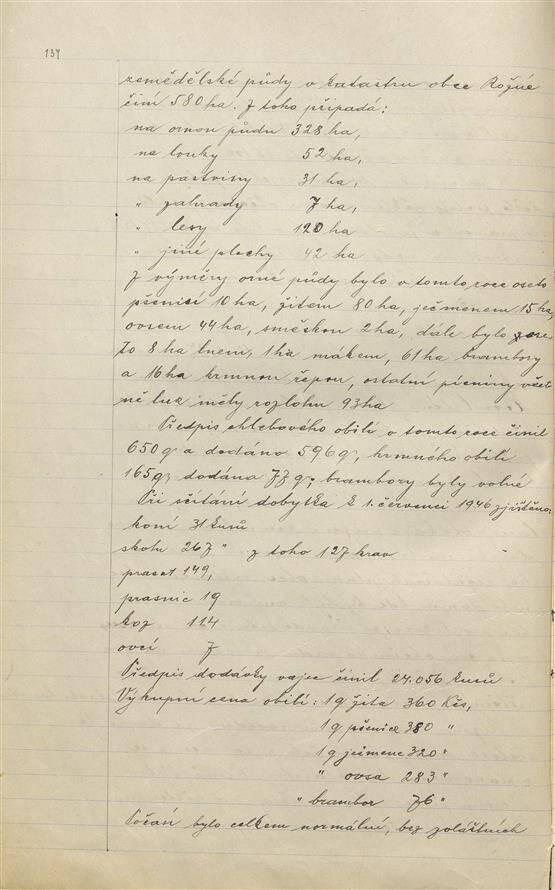 137
zemědělské půdy v katastru obce Rožné
činí 580 ha. Z toho připadá:
na ornou půdu 328 ha,
na louky 52 ha,
na pastviny 31 ha,
" zahrady 7 ha,
" lesy 120 ha
" jiné plochy 42 ha
Z výměry orné půdy bylo v tomto roce oseto
pšenicí 10 ha, žitem 80 ha, ječmenem 15 ha,
ovsem 44 ha, směskou 2 ha, dále bylo zase
to 8 ha lnem, 1 ha mákem, 61 ha brambory
a 16 ha krmnou řepou, ostatní pícniny všet
ně luk měly rozlohu 93 ha
Předpis chlebového obilí v tomto roce činil
650 q a dodáno 596 q, krmného obilí
165 q, dodáno 77 q, brambory byly volné
Při sčítání dobytka k 1. červenci 1946 zjištěno:
koní 31 kusů
skotu 267 " z toho 127 krav
prasat 149,
prasnic 19
koz 114
ovcí 7
Předpis dodávky vajec činil 24.056 kusů
Výkupní cena obilí: 1 q žita 360 Kčs,
1 q pšenice 380 "
1 q ječmene 320 "
" ovsa 283 "
" brambor 76 "
Počasí bylo celkem normální, bez zvláštních